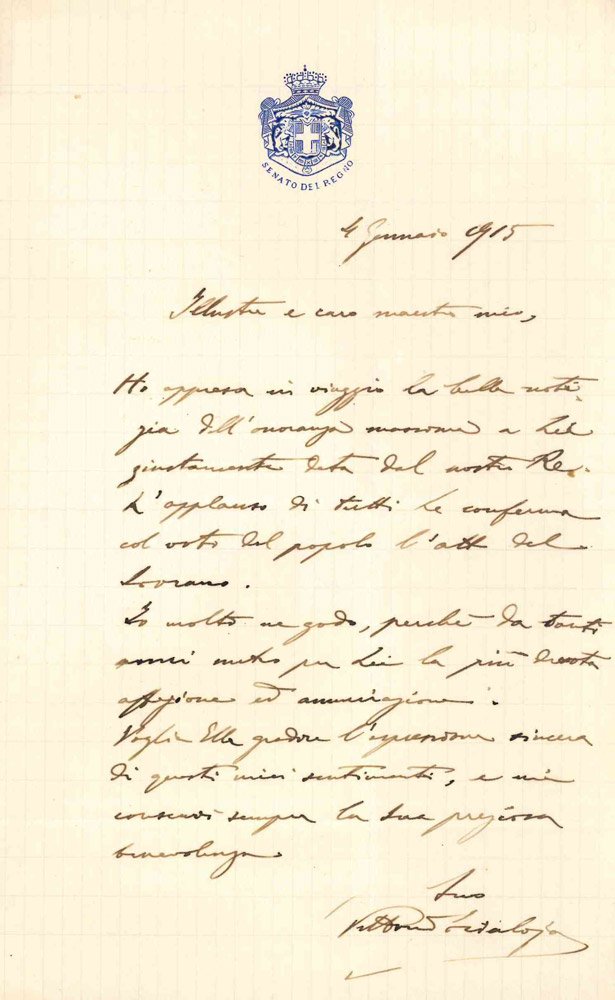 SENATO DEL REGNO
4 Gennaio 1915
Illustre e caro maestro mio,
Ho appreso in viaggio la bella noti-
zia dell'onoranza massima a Lei
giustamente data dal nostro Re.
L'applauso di tutti Le conferma
col voto del popolo l'atto del
Sovrano.
Io molto ne godo, perchè da tanti
anni nutro per Lei la più devota
affezione ed ammirazione.
Voglia Ella gradire l'espressione sincera
di questi miei sentimenti, e mi
conservi sempre la Sua preziosa
benevolenza.
Suo
Vittorio Scialoja